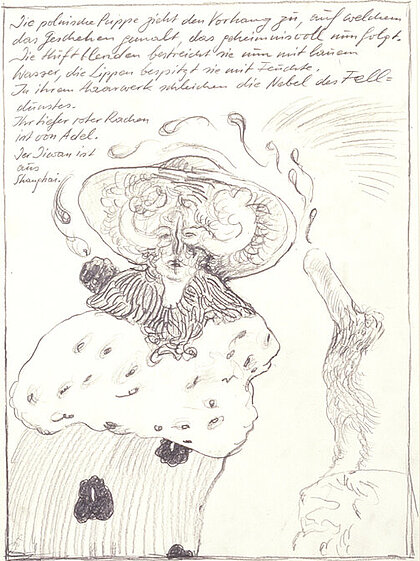 Die polnische Puppe zieht den Vorhang zu, auf welchem
das Geschehen gemalt, das geheimnisvoll nun folgt.
Die Hüftblenden bestreicht sie nun mit lauem
Wasser, die Lippen bespitzt sie mit Feuchte.
In ihrem Haarwerk schleichen die Nebel des Fell-
dunstes.
Ihr tiefer roter Rachen
ist von Adel.
Der Diwan ist
aus
Shanghai.